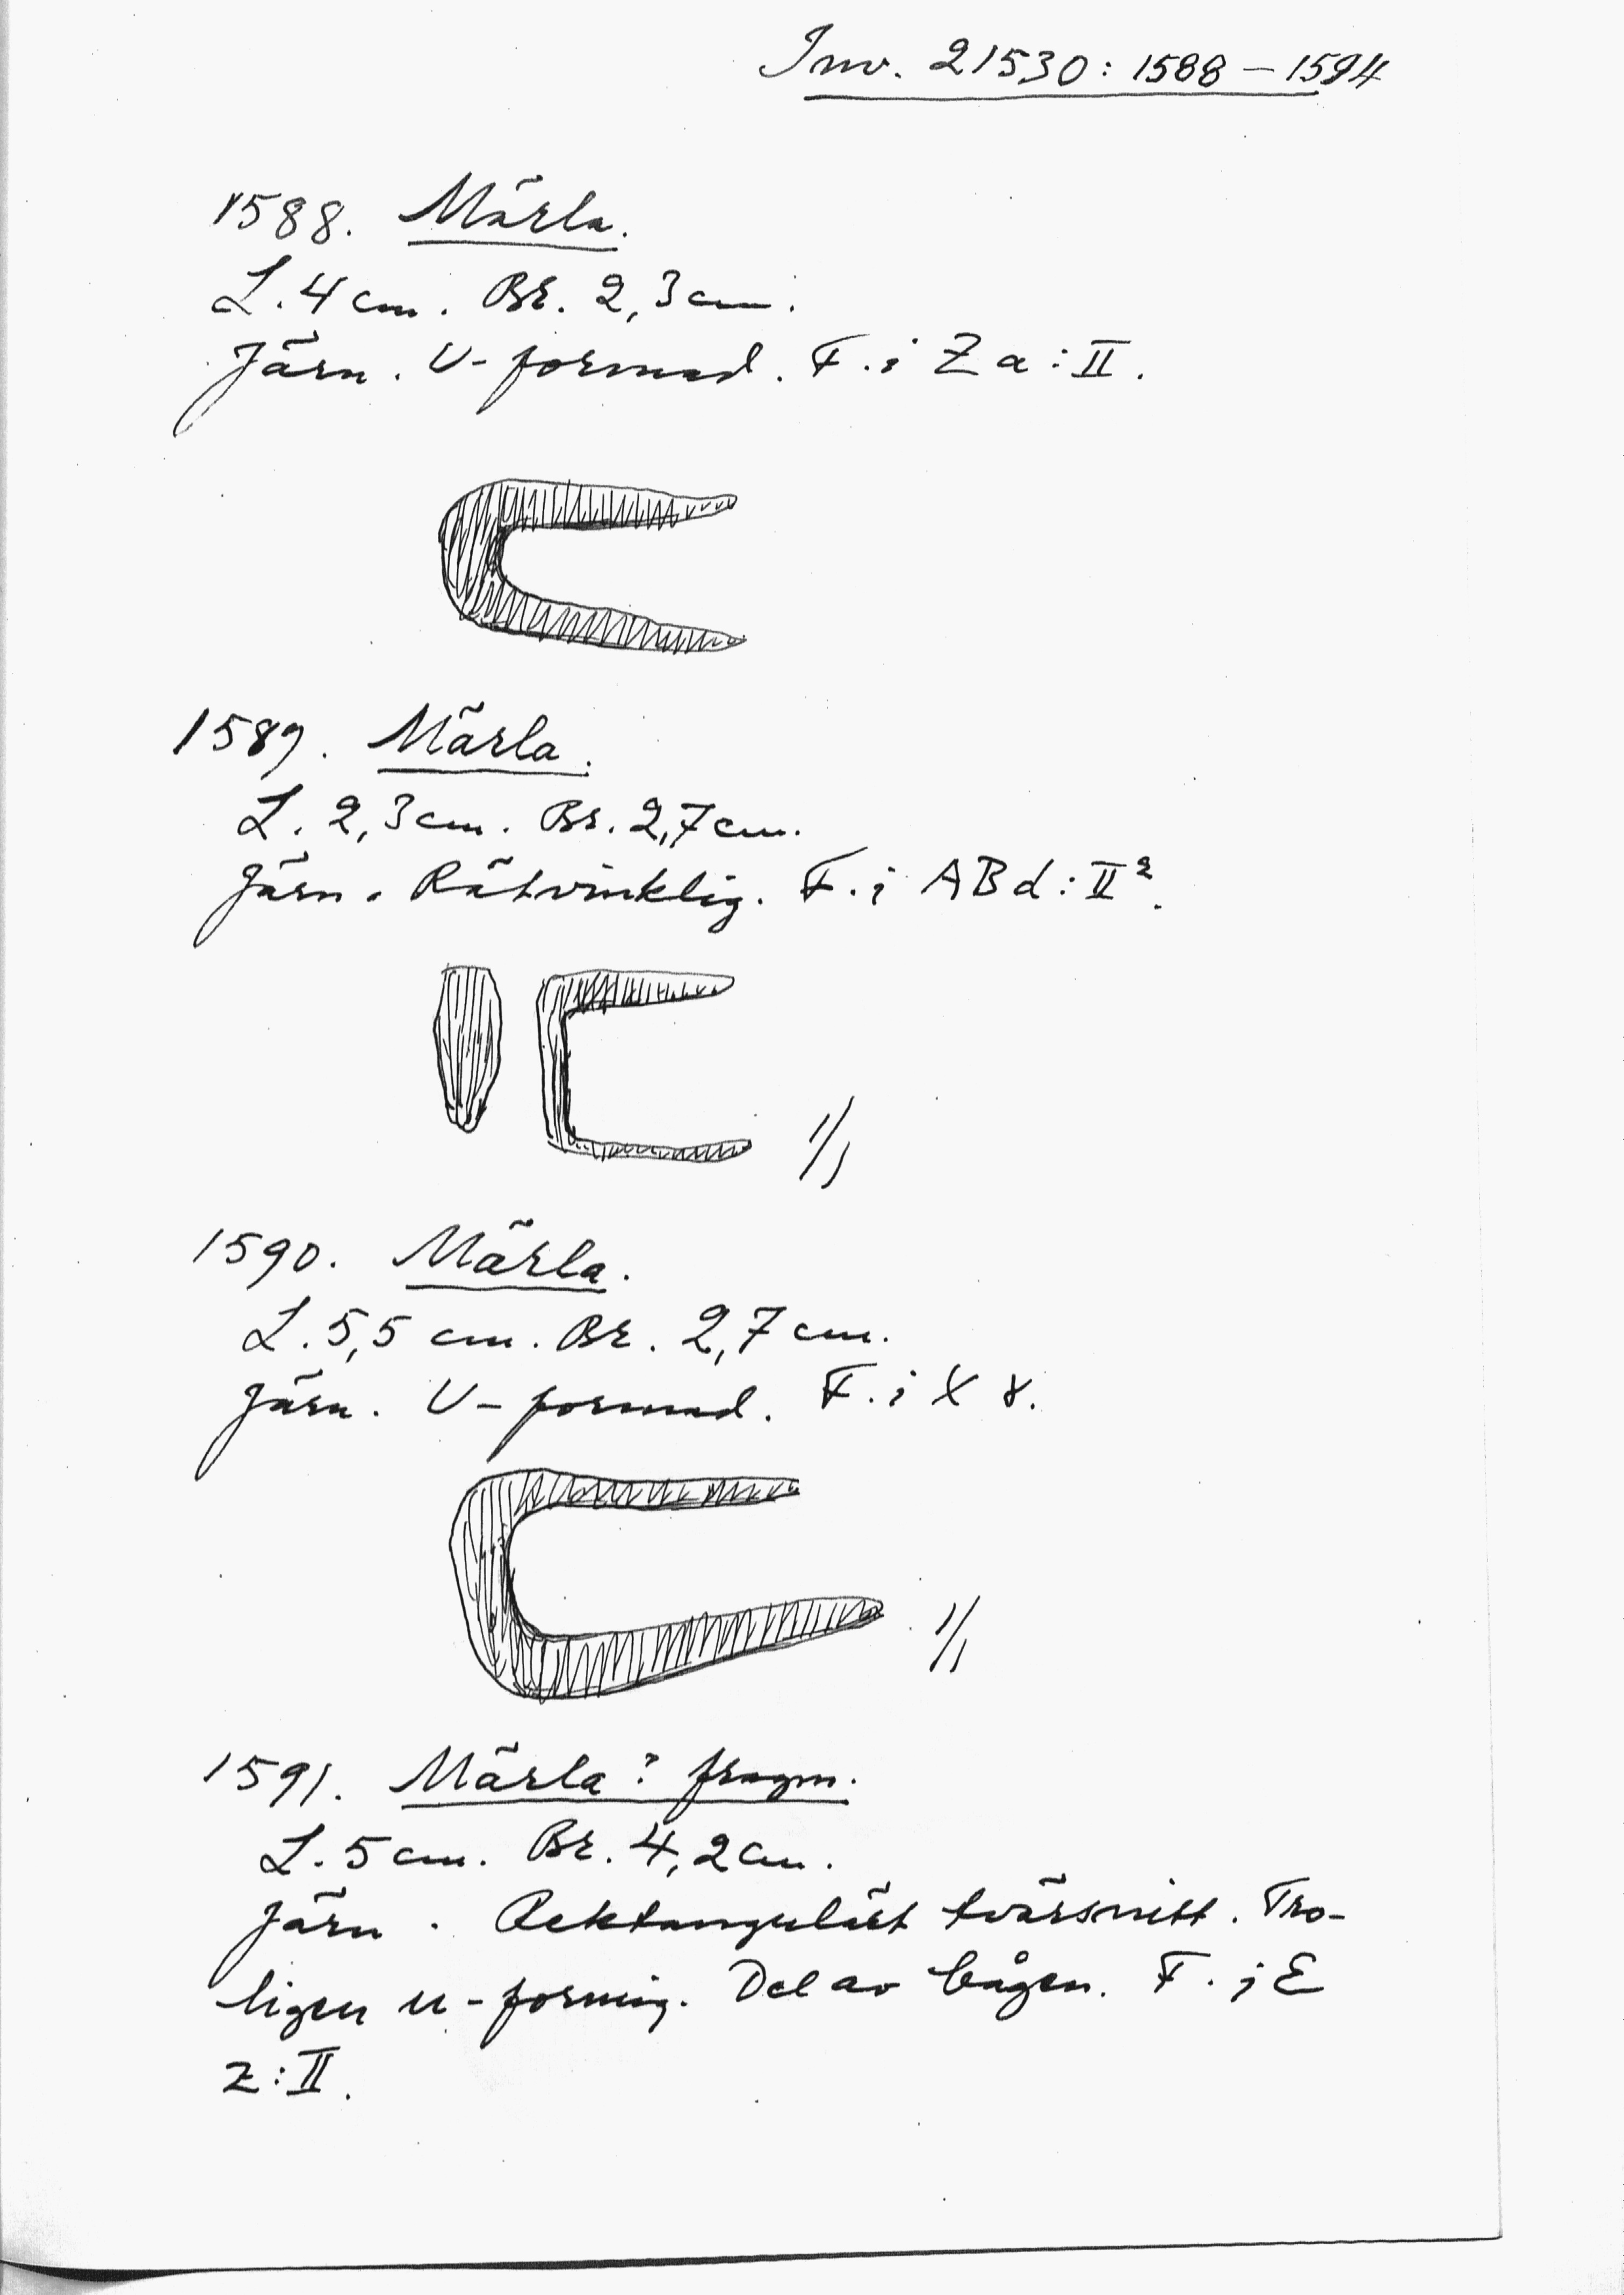 Inv. 21530: 1588 – 1594
1588. Märla.
L. 4 cm. Br. 2,3 cm.
Järn. U-formad. F. i Z a : II.
1589. Märla.
L. 2,3 cm. Br. 2,7 cm.
Järn. Rätvinklig. F. i A B d : II².
1/1
1590. Märla.
L. 5,5 cm. Br. 2,7 cm.
Järn. U-formad. F. i X
1/1
1591. Märla? fragm.
L. 5 cm. Br. 4,2 cm.
Järn. Rektangulärt tvärsnitt. Tro-
ligen u-formig. Del av bågen. F. i E
z : II.